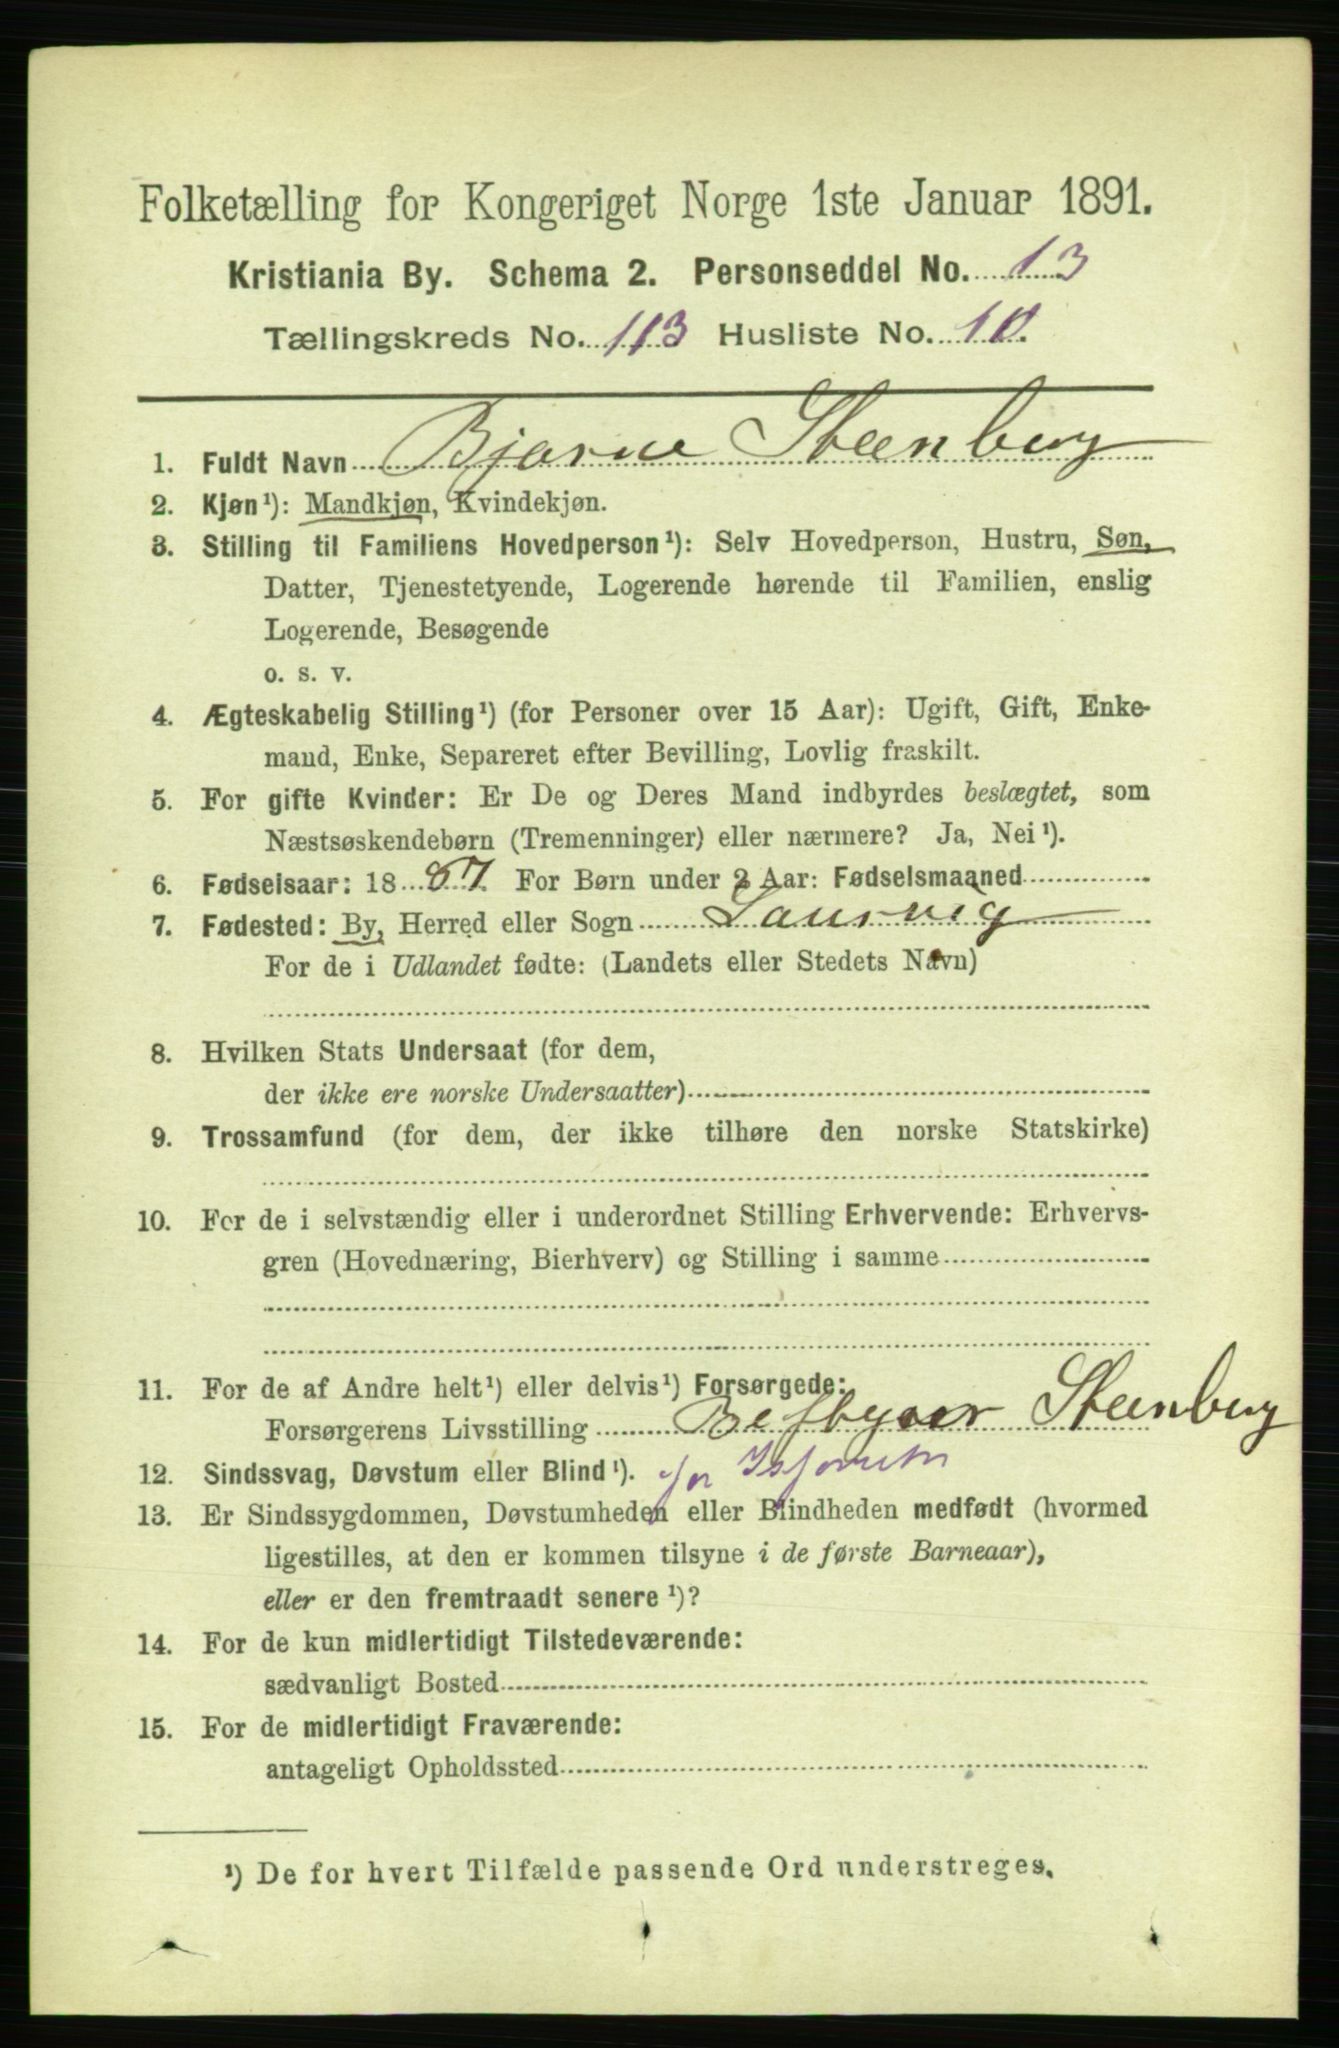 Folketælling for Kongeriget Norge 1ste Januar 1891.
Kristiania By. Schema 2. Personseddel No. 13
Tællingskreds No. 113 Husliste No. 10.
1. Fuldt Navn Bjarne Steenberg
2. Kjøn¹): Mandkjøn, Kvindekjøn.
3. Stilling til Familiens Hovedperson¹): Selv Hovedperson, Hustru, Søn,
Datter, Tjenestetyende, Logerende hørende til Familien, enslig
Logerende, Besøgende
o. s. v.
4. Ægteskabelig Stilling¹) (for Personer over 15 Aar): Ugift, Gift, Enke-
mand, Enke, Separeret efter Bevilling, Lovlig fraskilt.
5. For gifte Kvinder: Er De og Deres Mand indbyrdes beslægtet, som
Næstsøskendebørn (Tremenninger) eller nærmere? Ja, Nei¹).
6. Fødselsaar: 1887. For Børn under 2 Aar: Fødselsmaaned
7. Fødested: By, Herred eller Sogn Laurvig
For de i Udlandet fødte: (Landets eller Stedets Navn)
8. Hvilken Stats Undersaat (for dem,
der ikke ere norske Undersaatter)
9. Trossamfund (for dem, der ikke tilhøre den norske Statskirke)
10. For de i selvstændig eller i underordnet Stilling Erhvervende: Erhvervs-
gren (Hovednæring, Bierhverv) og Stilling i samme
11. For de af Andre helt¹) eller delvis¹) Forsørgede:
Forsørgerens Livsstilling Steenberg
12. Sindssvag, Døvstum eller Blind¹).
13. Er Sindssygdommen, Døvstumheden eller Blindheden medfødt (hvormed
ligestilles, at den er kommen tilsyne i de første Barneaar),
eller er den fremtraadt senere¹)?
14. For de kun midlertidigt Tilstedeværende:
sædvanligt Bosted
15. For de midlertidigt Fraværende:
antageligt Opholdssted
¹) De for hvert Tilfælde passende Ord understreges.